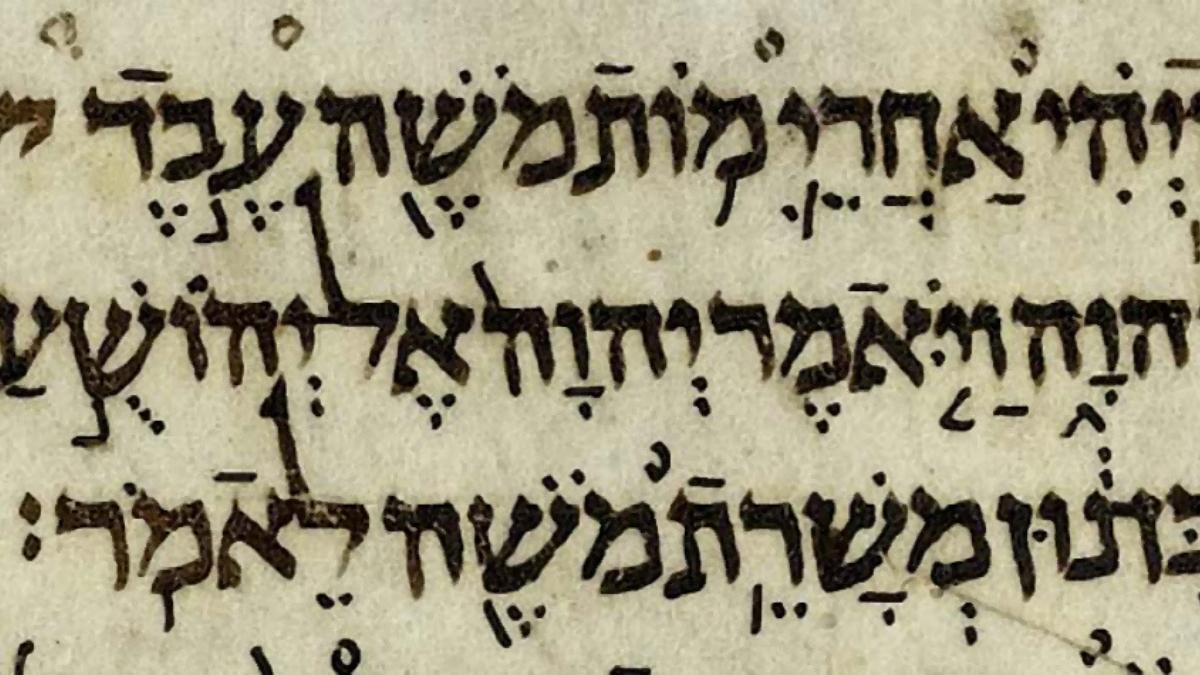 יְהִי אַחֲרֵי מוֹת מֹשֶׁה עֶבֶד י
הוָה וַיֹּאמֶר יְהוָה אֶל יְהוֹשֻׁעַ
בִּן נוּן מְשָׁרֵת מֹשֶׁה לֵאמֹר׃